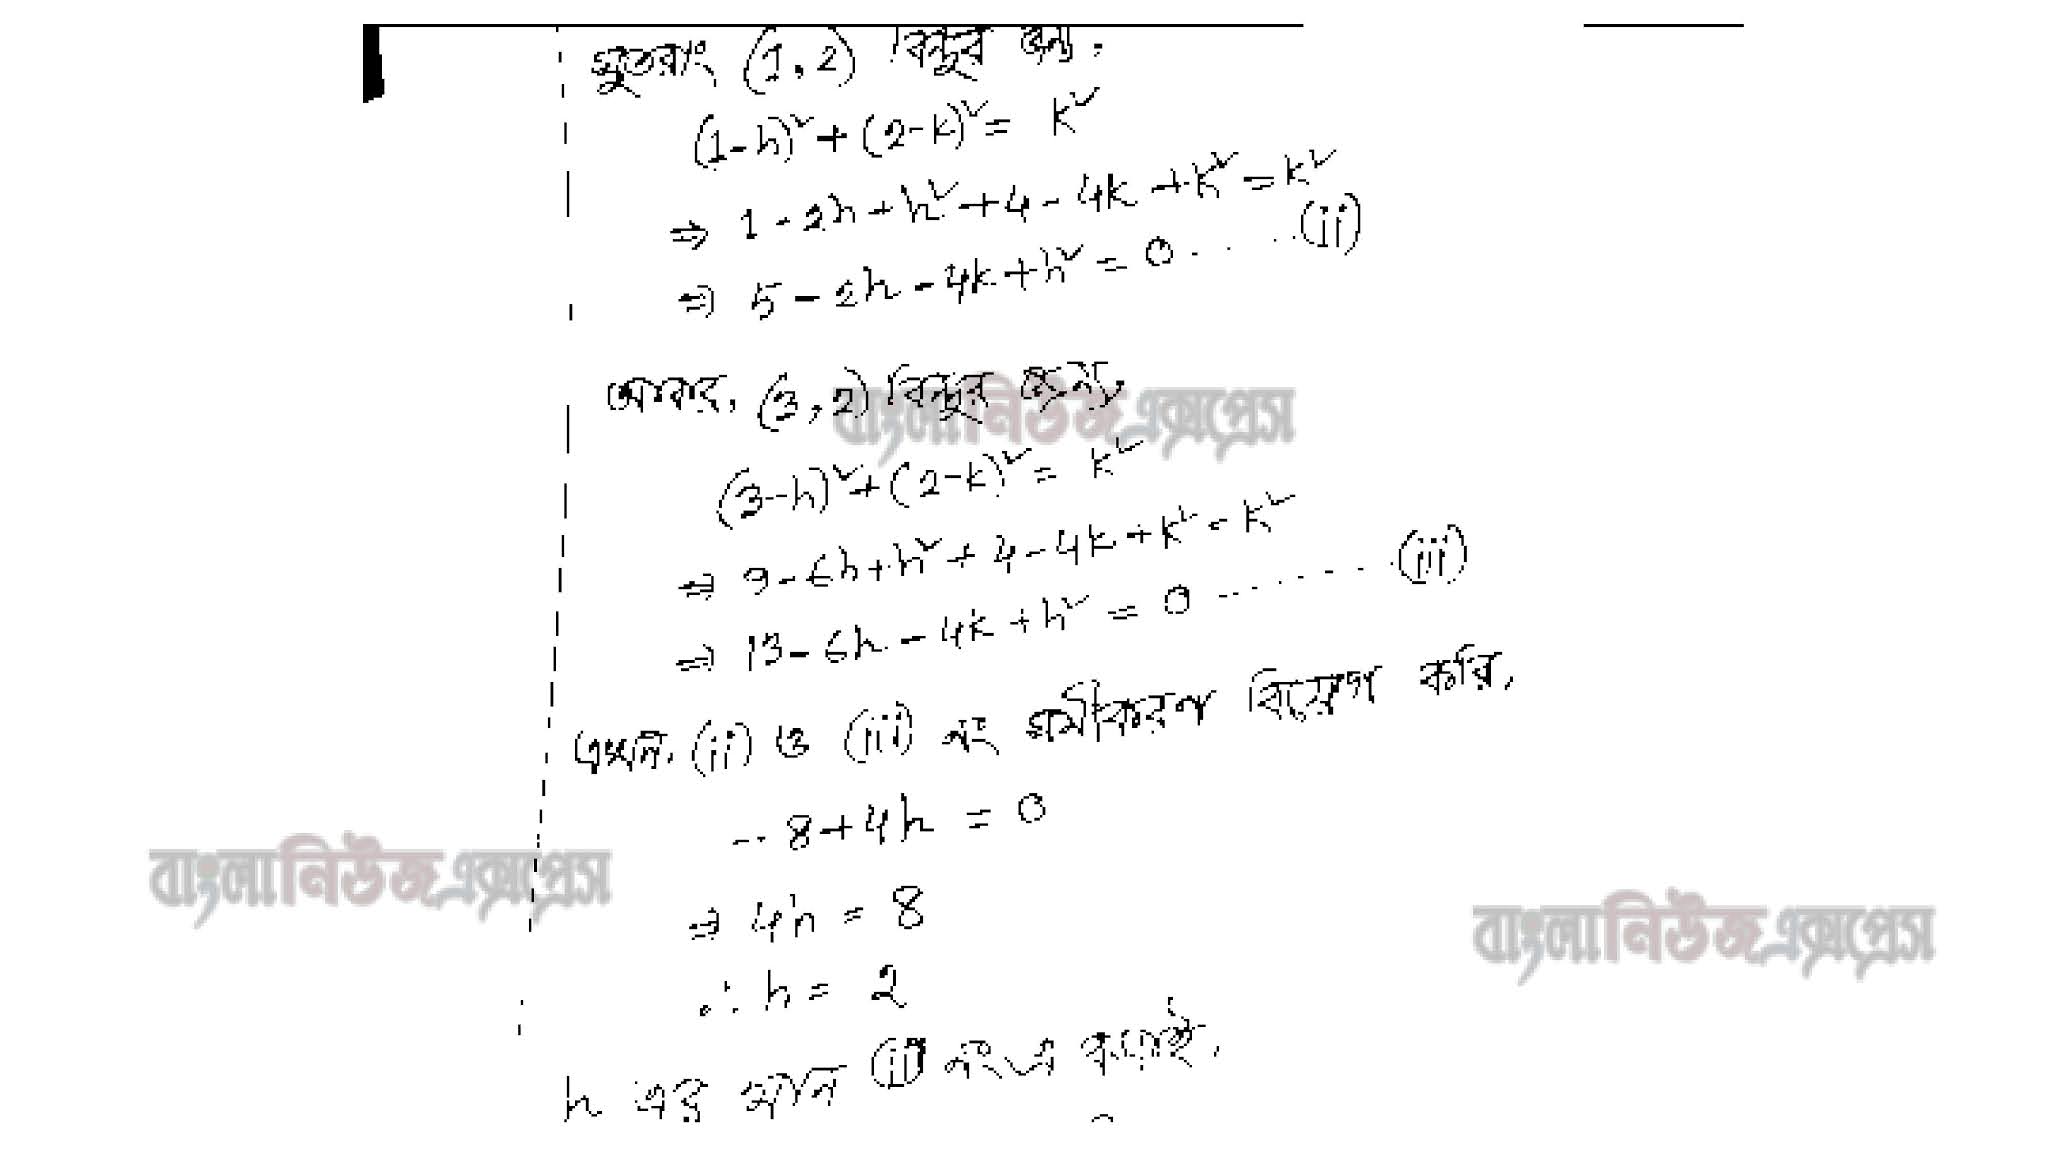 সুতরাং (1, 2) বিন্দুর জন্য,
(1-h)² + (2-k)² = k²
⇒ 1 - 2h + h² + 4 - 4k + k² = k²
⇒ 5 - 2h - 4k + h² = 0 ..... (ii)
আবার, (3, 2) বিন্দুর জন্য,
বাংলানিউজএক্সপ্রেস
(3-h)² + (2-k)² = k²
⇒ 9 - 6h + h² + 4 - 4k + k² = k²
⇒ 13 - 6h - 4k + h² = 0 ........ (iii)
এখন, (ii) ও (iii) নং সমীকরণ বিয়োগ করি,
-8 + 4h = 0
বাংলানিউজএক্সপ্রেস
⇒ 4h = 8
বাংলানিউজএক্সপ্রেস
∴ h = 2
h এর মান (ii) নং এ বসাই,